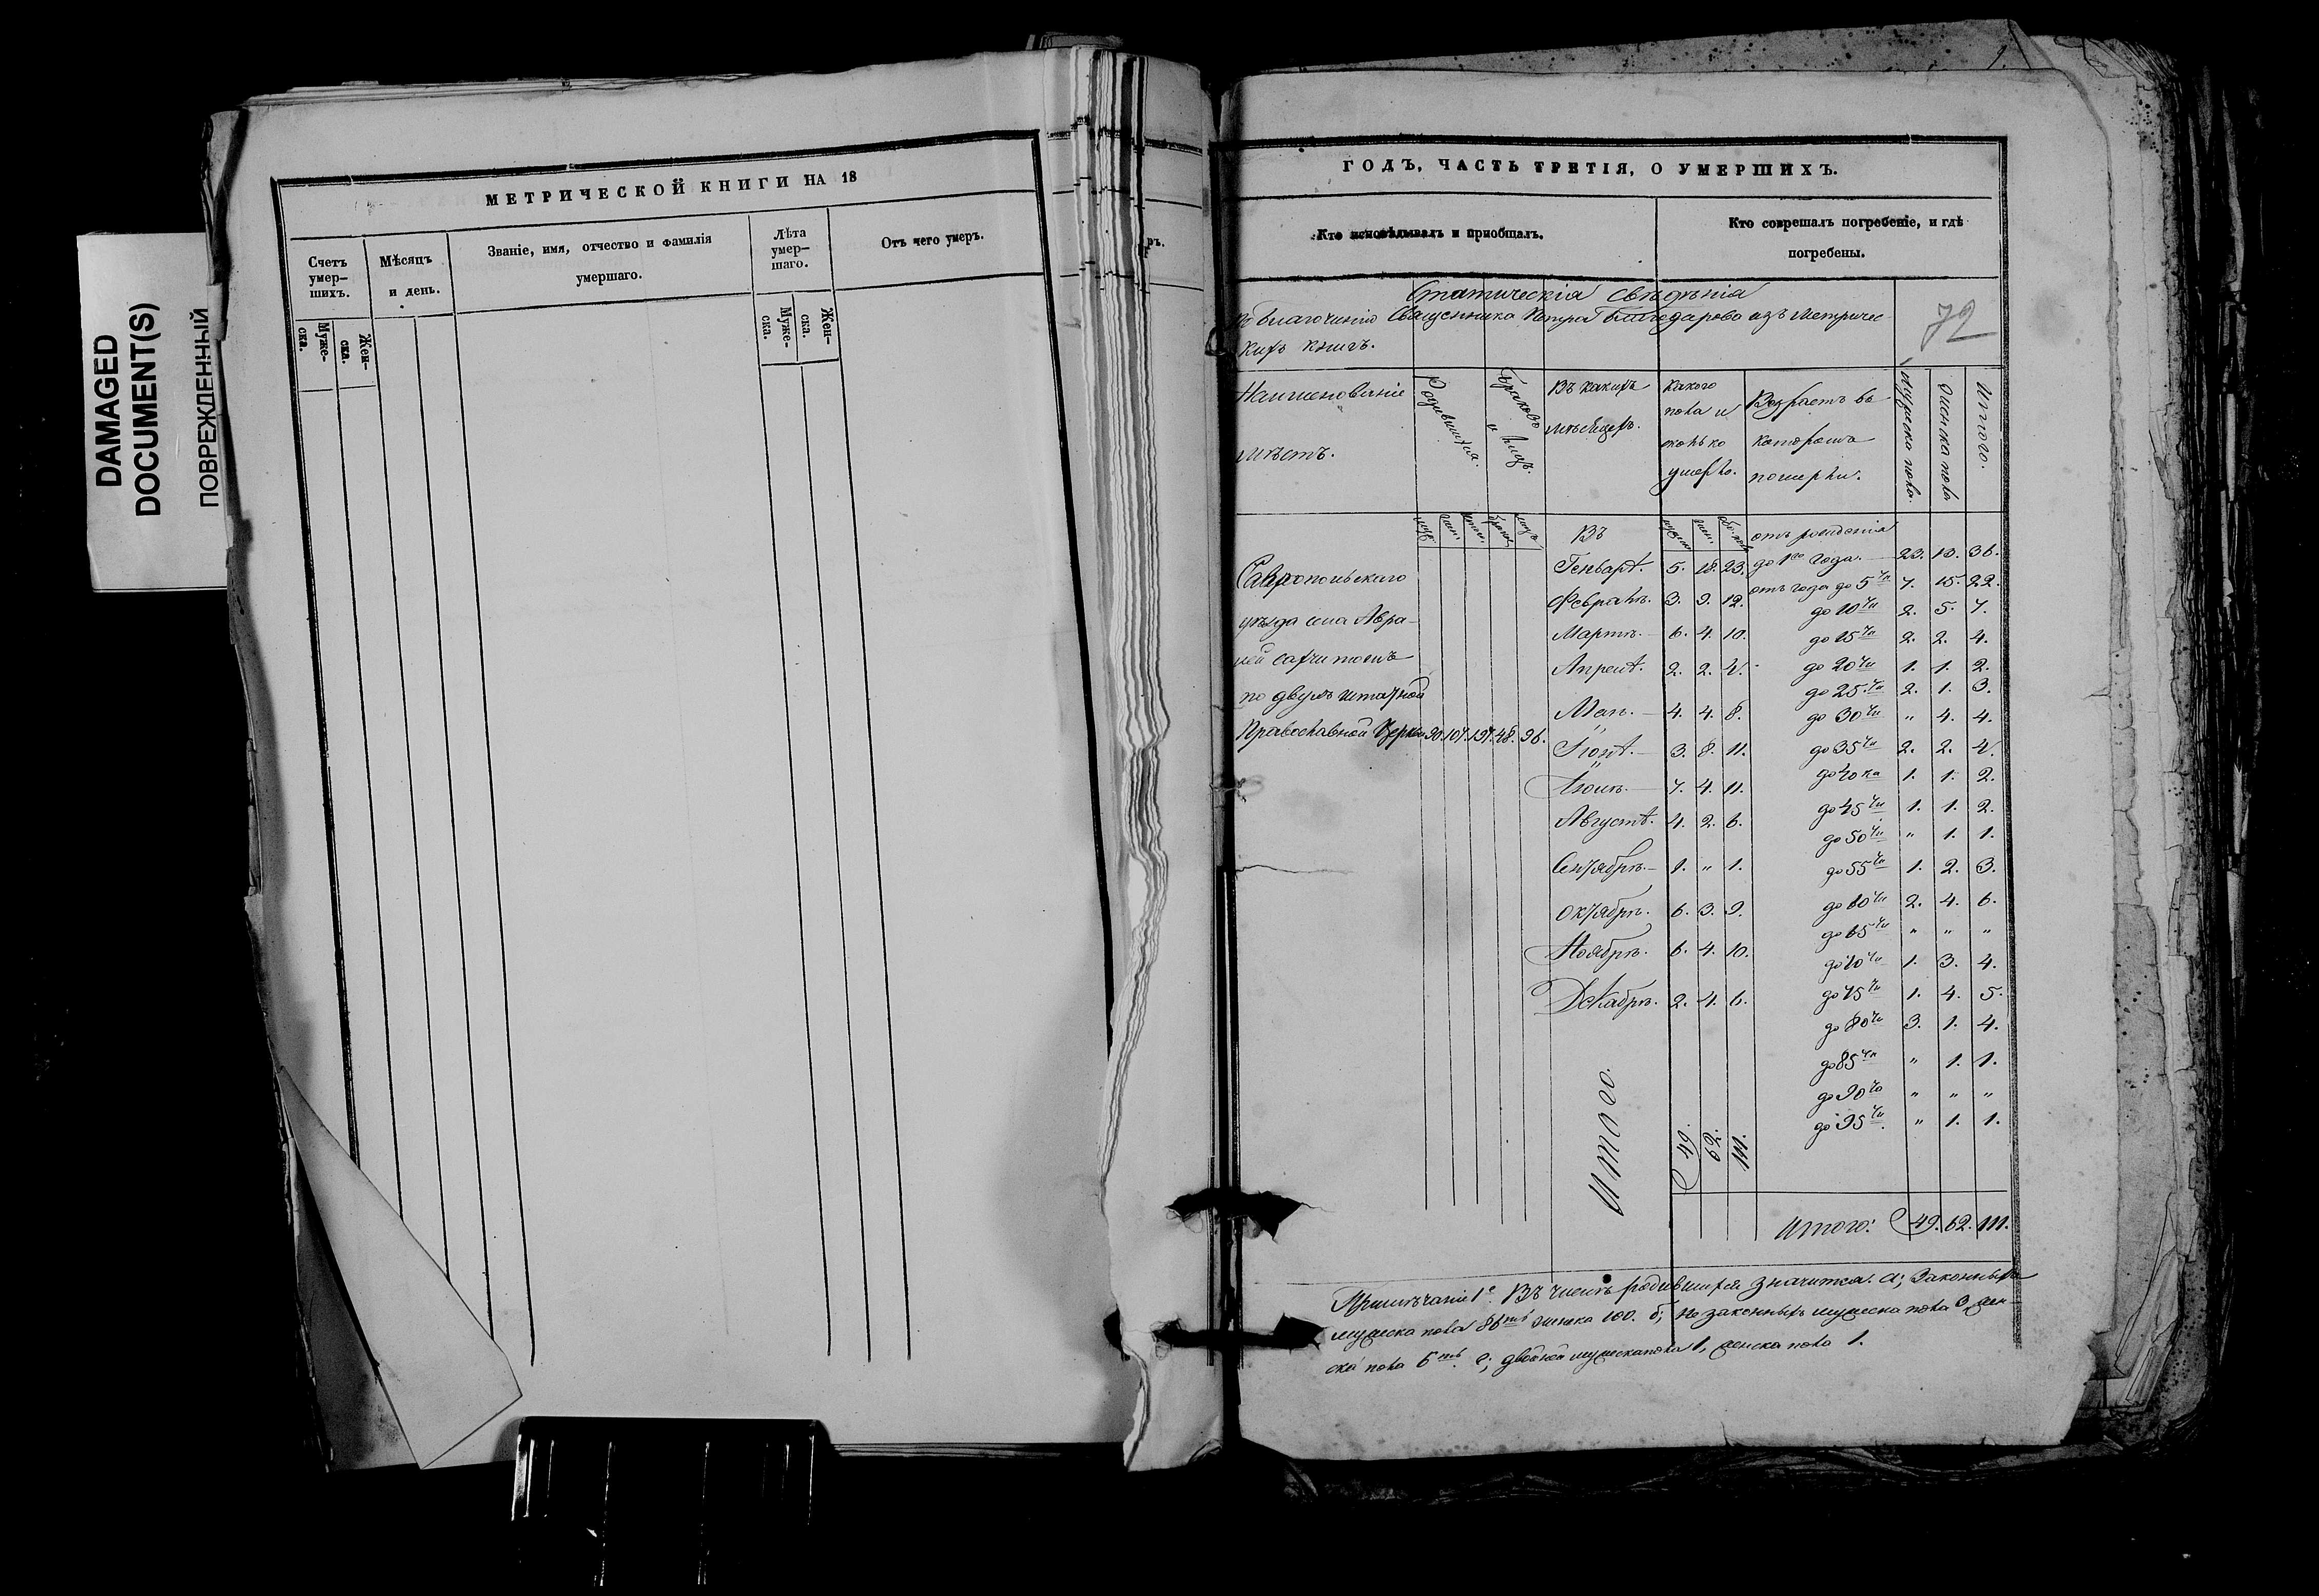 DAMAGED
DOCUMENT(S)
ПОВРЕЖДЕННЫЙ
МЕТРИЧЕСКОЙ КНИГИ НА 18
Счетъ умер-шихъ.
Муже-ска.
Жен-ска.
Мѣсяцъ и день.
Званіе, имя, отчество и фамилія
умершаго.
Лѣта умер-шаго.
Муже-ска.
Жен-ска.
Отъ чего умеръ.
ръ.
ГОДЪ, ЧАСТЬ ТРЕТІЯ, О УМЕРШИХЪ.
Кто исповѣдывалъ и пріобщалъ.
Кто совершалъ погребеніе, и гдѣ
погребены.
72
свѣдѣнія
Священника Петра изъ Метричес-
кихъ книгъ.
Наименованіе
мѣстъ.
Родившихся.
Браковъ и лицъ.
Въ какихъ
мѣсяцахъ.
Какого
пола и
сколько
умерло.
Возрастъ въ
которомъ
померли.
Мужеска пола.
Женска пола
Итого.
Въ
отъ рожденія
Генварѣ. 5. 18. 23. до 1го года. 23. 13. 36.
Февралѣ. 3. 9. 12. отъ года до 5ти 7. 15. 22.
до 10ти 2. 5. 7.
Мартѣ. 6. 4. 10. до 15ти 2. 2. 4.
Апрелѣ. 2. 2. 4. до 20ти 1. 1. 2.
до 25ти 2. 1. 3.
Маѣ. 4. 4. 8. до 30ти " 4. 4.
Іюнѣ. 3. 8. 11. до 35ти 2. 2. 4.
до 40ка 1. 1. 2.
Іюлѣ. 7. 4. 11. до 45ти 1. 1. 2.
Августѣ. 4. 2. 6. до 50ти " 1. 1.
Сентябрѣ. 1. " 1. до 55ти 1. 2. 3.
Октябрѣ. 6. 3. 9. до 60ти 2. 4. 6.
до 65ти " " "
Ноябрѣ. 6. 4. 10. до 70ти 1. 3. 4.
Декабрѣ. 2. 4. 6. до 75ти 1. 4. 5.
до 80ти 3. 1. 4.
до 85ти " 1. 1.
до 90то " " "
до 95ти " 1. 1.
уѣзда села
по двумъ штатной
Православной Церкви 90. 107. 197. 48. 96.
Итого. 49. 62. 111.
Итого: 49. 62. 111.
Примѣчаніе 1е. Въ числѣ родившихся значится: а; Законныхъ
мужеска пола 86ть женска 100. б; не законныхъ мужеска пола 3, жен-
ска пола 6ть. в; двойней мужеска пола 1, женска пола 1.